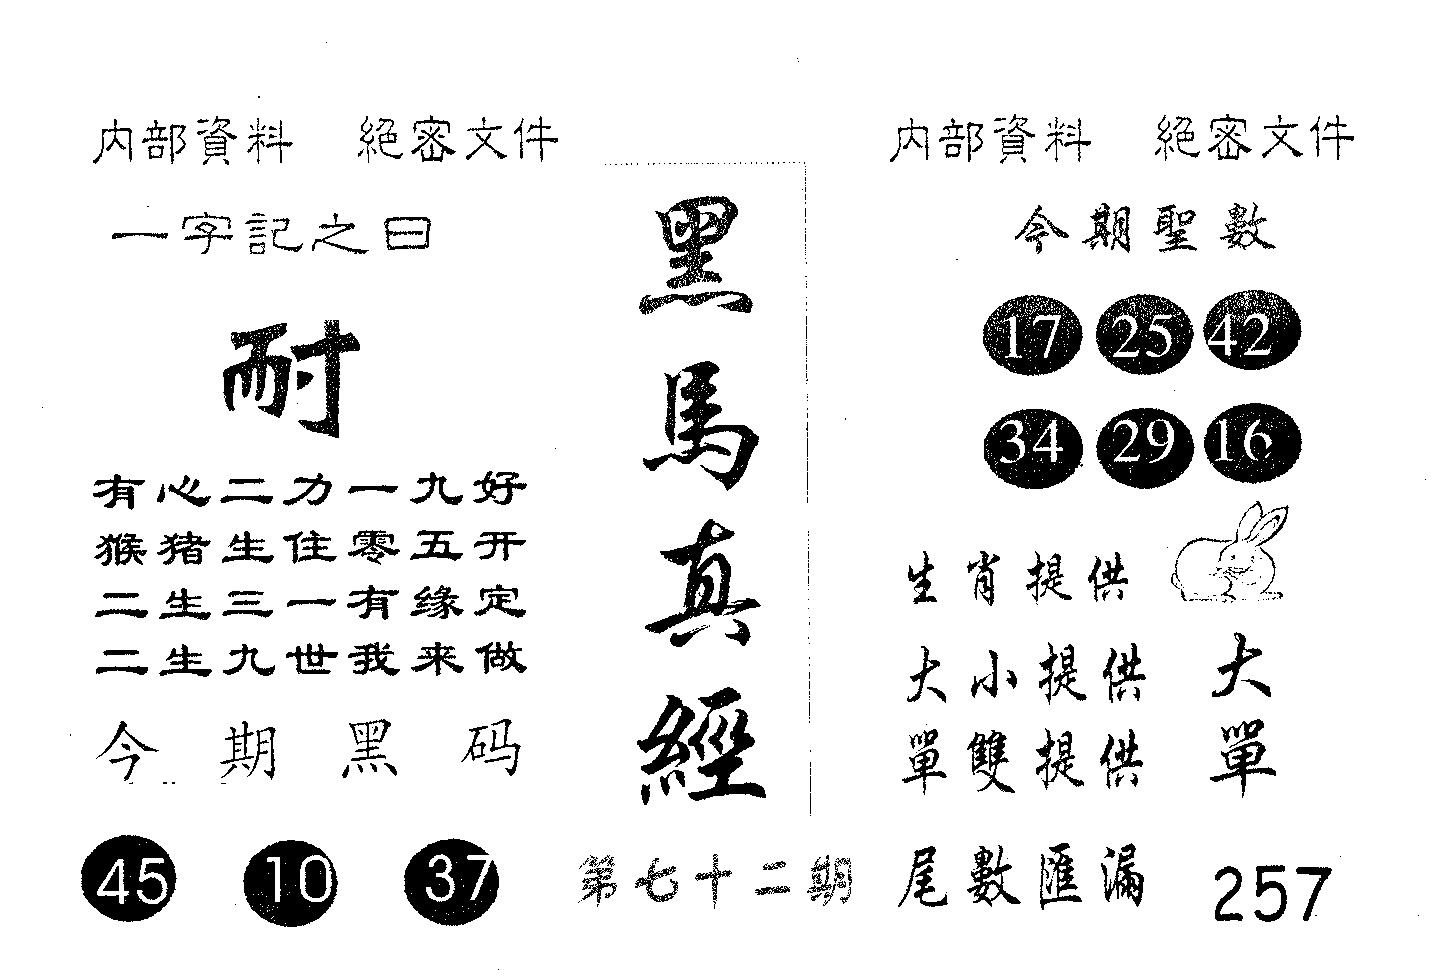 内部資料 絕密文件
一字記之曰
耐
有心二力一九好
猴猪生住零五开
二生三一有缘定
二生九世我来做
今期黑码
45 10 37
黑馬真經
第七十二期
内部資料 絕密文件
今期聖數
17 25 42
34 29 16
生肖提供
大小提供 大
單雙提供 單
尾數匯漏 257